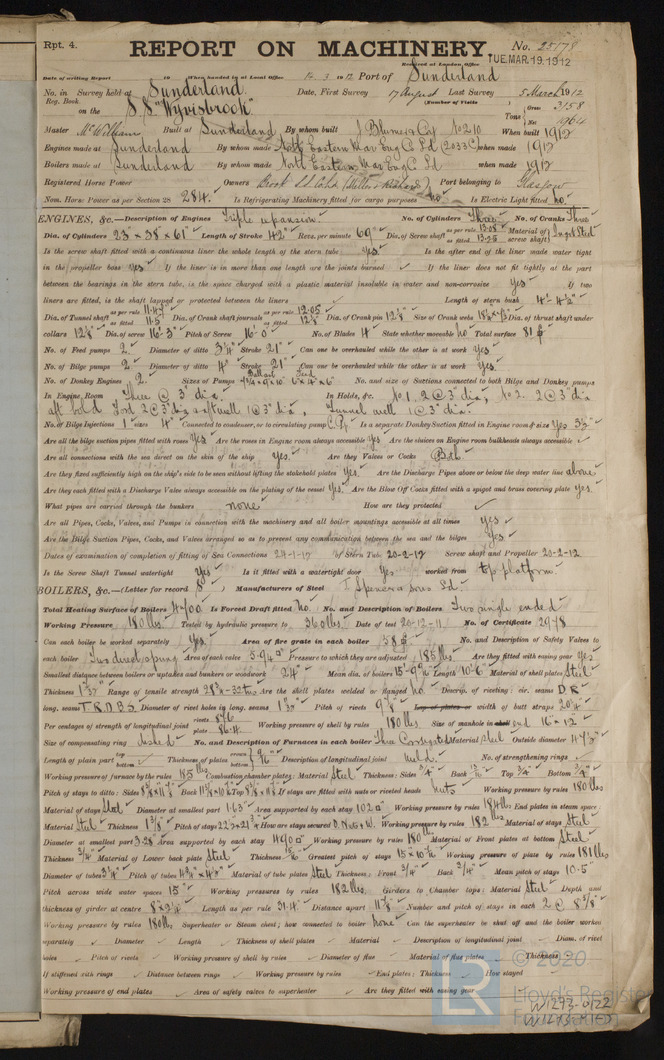 Rpt. 4. REPORT ON MACHINERY. No. 25178
Received at London Office TUE. MAR. 19. 1912
Date of writing Report 19 When handed in at Local Office 14. 3. 1912 Port of Sunderland
No. in Survey held at Sunderland Date, First Survey 17 August Last Survey 5 March 1912
Reg. Book. (Number of Visits )
on the S.S. "Wyvisbrook" Tons Gross 3158 Net 1964
Master McWilliam Built at Sunderland By whom built J Blumer & Co No 210 When built 1912
Engines made at Sunderland By whom made North Eastern Mar Eng Co Ld (2033) when made 1912
Boilers made at Sunderland By whom made North Eastern Mar Eng Co Ld when made 1912
Registered Horse Power Owners Port belonging to Glasgow
Nom. Horse Power as per Section 28 284. Is Refrigerating Machinery fitted for cargo purposes no Is Electric Light fitted no.
ENGINES, &c.—Description of Engines Triple expansion. No. of Cylinders Three No. of Cranks Three
Dia. of Cylinders 23" × 38" × 61" Length of Stroke 42" Revs. per minute 60 Dia. of Screw shaft as per rule 13.08 as fitted 13.25 Material of screw shaft Ingot Steel
Is the screw shaft fitted with a continuous liner the whole length of the stern tube Yes. Is the after end of the liner made water tight
in the propeller boss Yes If the liner is in more than one length are the joints burned If the liner does not fit tightly at the part
between the bearings in the stern tube, is the space charged with a plastic material insoluble in water and non-corrosive Yes If two
liners are fitted, is the shaft lapped or protected between the liners Length of stern bush 4'-4½"
Dia. of Tunnel shaft as per rule 11.47 as fitted 11.5 Dia. of Crank shaft journals as per rule 12.05 as fitted 12⅛ Dia. of Crank pin 12⅛" Size of Crank webs Dia. of thrust shaft under
collars 12⅛" Dia. of screw 16'-3" Pitch of Screw 16'-0" No. of Blades 4 State whether moveable No Total surface 81
No. of Feed pumps 2. Diameter of ditto 3¼" Stroke 21" Can one be overhauled while the other is at work Yes
No. of Bilge pumps 2 Diameter of ditto 4" Stroke 21" Can one be overhauled while the other is at work Yes
No. of Donkey Engines 2. Sizes of Pumps No. and size of Suctions connected to both Bilge and Donkey pumps
In Engine Room Three @ 3" dia. In Holds, &c. No 1, 2 @ 3" dia, No 2. 2 @ 3" dia
aft hold 2 @ 3" dia aft well 1 @ 3" dia, Tunnel well 1 @ 3" dia.
No. of Bilge Injections 1 sizes 4" Connected to condenser, or to circulating pump C.P. Is a separate Donkey Suction fitted in Engine room & size Yes 3½"
Are all the bilge suction pipes fitted with roses Yes Are the roses in Engine room always accessible Yes Are the sluices on Engine room bulkheads always accessible
Are all connections with the sea direct on the skin of the ship Yes. Are they Valves or Cocks Both
Are they fixed sufficiently high on the ship's side to be seen without lifting the stokehold plates Yes. Are the Discharge Pipes above or below the deep water line above
Are they each fitted with a Discharge Valve always accessible on the plating of the vessel Yes. Are the Blow Off Cocks fitted with a spigot and brass covering plate Yes.
What pipes are carried through the bunkers none How are they protected
Are all Pipes, Cocks, Valves, and Pumps in connection with the machinery and all boiler mountings accessible at all times Yes
Are the Bilge Suction Pipes, Cocks, and Valves arranged so as to prevent any communication between the sea and the bilges Yes
Dates of examination of completion of fitting of Sea Connections 24-1-12 of Stern Tube 20-2-12 Screw shaft and Propeller 20-2-12
Is the Screw Shaft Tunnel watertight Yes Is it fitted with a watertight door Yes worked from top platform
BOILERS, &c.—(Letter for record S) Manufacturers of Steel J Spencer & Sons Ld.
Total Heating Surface of Boilers 4700 Is Forced Draft fitted No. No. and Description of Boilers Two single ended
Working Pressure 180 lbs Tested by hydraulic pressure to 360 lbs Date of test 20-12-11 No. of Certificate 2978
Can each boiler be worked separately Yes Area of fire grate in each boiler 58 No. and Description of Safety Valves to
each boiler Two direct spring Area of each valve 5.94 Pressure to which they are adjusted 185 lbs Are they fitted with easing gear Yes
Smallest distance between boilers or uptakes and bunkers or woodwork 24" Mean dia. of boilers Length 10'-6" Material of shell plates Steel
Thickness Range of tensile strength Are the shell plates welded or flanged No Descrip. of riveting: cir. seams D R
long. seams T.R.D.B.S Diameter of rivet holes in long. seams Pitch of rivets Lap of plates or width of butt straps
Per centages of strength of longitudinal joint rivets plate 86.4 Working pressure of shell by rules 180 lbs Size of manhole in shell end 16" × 12"
Size of compensating ring dished No. and Description of Furnaces in each boiler Three Corrugated Material Steel Outside diameter
Length of plain part top bottom Thickness of plates crown bottom Description of longitudinal joint weld. No. of strengthening rings
Working pressure of furnace by the rules 185 lbs Combustion chamber plates: Material Steel Thickness: Sides ¾" Back Top ¾" Bottom ¾"
Pitch of stays to ditto: Sides Back Top If stays are fitted with nuts or riveted heads Nuts Working pressure by rules 180 lbs
Material of stays Steel Diameter at smallest part 1.63" Area supported by each stay 102 Working pressure by rules 184 lbs End plates in steam space:
Material Steel Thickness 1⅜" Pitch of stays How are stays secured D. Nuts & W. Working pressure by rules 182 lbs Material of stays Steel
Diameter at smallest part 3.28 Area supported by each stay 490 Working pressure by rules 180 lbs Material of Front plates at bottom Steel
Thickness ¾" Material of Lower back plate Steel Thickness Greatest pitch of stays Working pressure of plate by rules 181 lbs
Diameter of tubes 3¼" Pitch of tubes Material of tube plates Steel Thickness: Front ¾" Back ¾" Mean pitch of stays 10.5"
Pitch across wide water spaces 15" Working pressures by rules 182 lbs Girders to Chamber tops: Material Steel Depth and
thickness of girder at centre Length as per rule 31.4 Distance apart 11⅞" Number and pitch of stays in each 2 @ 8⅝"
Working pressure by rules 180 lbs Superheater or Steam chest; how connected to boiler None Can the superheater be shut off and the boiler worked
separately Diameter Length Thickness of shell plates Material Description of longitudinal joint Diam. of rivet
holes Pitch of rivets Working pressure of shell by rules Diameter of flue Material of flue plates Thickness
If stiffened with rings Distance between rings Working pressure by rules End plates: Thickness How stayed
Working pressure of end plates Area of safety valves to superheater Are they fitted with easing gear
© 2020
LR
Lloyd's Register
Foundation
W1293-0122